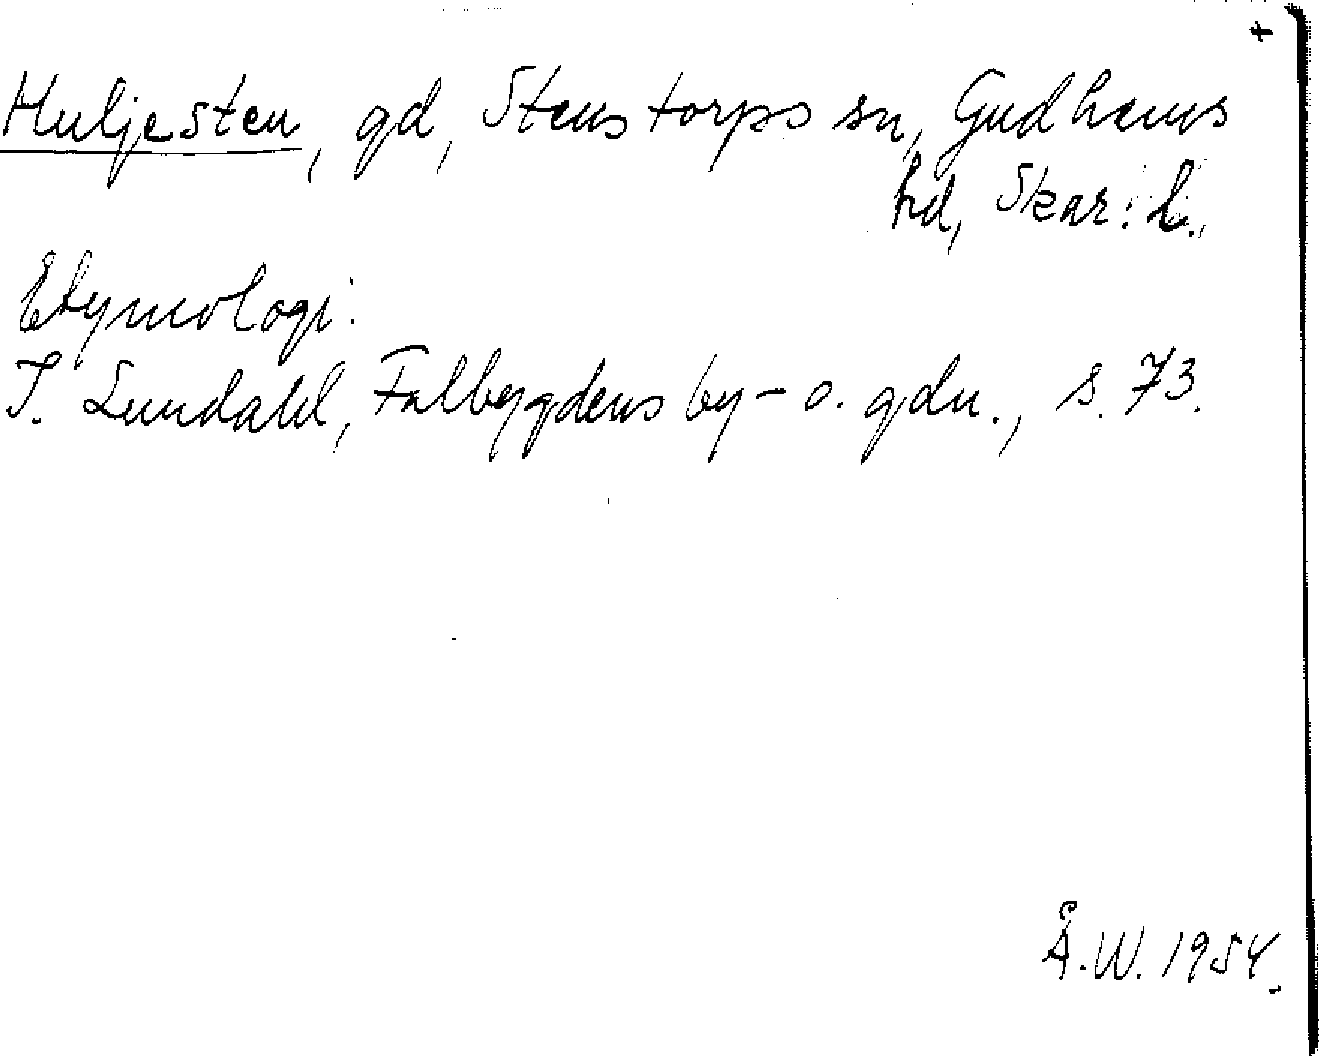 +
Huljesten, gd, Stenstorps sn, Gudhems
hd, Skar. l.,
Etymologi:
I. Lundahl, Falbygdens by- o. gdn., s. 73.
Å.W. 1954.